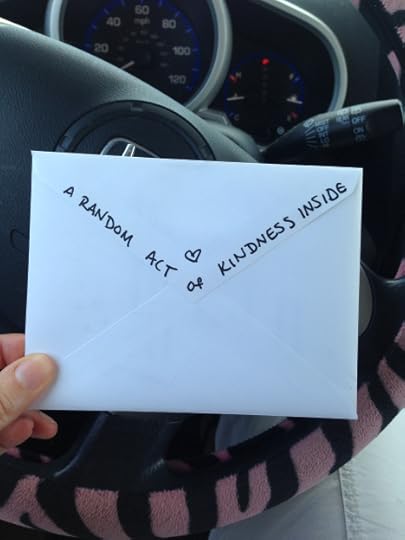 A RANDOM ACT of KINDNESS INSIDE
20
40
60
80
100
120
mph